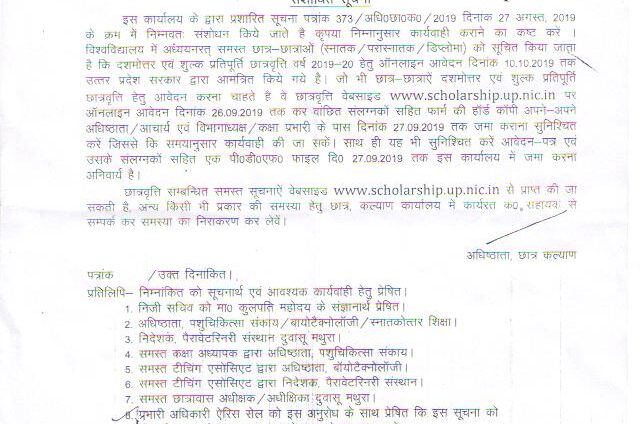 संशोधित सूचना
इस कार्यालय के द्वारा प्रशारित सूचना पत्रांक 373/अधि0छा0क0/2019 दिनाक 27 अगस्त, 2019
के क्रम में निम्नवतः संशोधन किये जाते है कृपया निम्नानुसार कार्यवाही कराने का कष्ट करें ।
विश्वविद्यालय में अर्ध्ययनरत् समस्त छात्र–छात्राओं (स्नातक/परास्नातक/डिप्लोमा) को सूचित किया जाता
है कि दशमोत्तर एवं शुल्क प्रतिपूर्ति छात्रवृत्ति वर्ष 2019–20 हेतु ऑनलाइन आवेदन दिनांक 10.10.2019 तक
उत्तर प्रदेश सरकार द्वारा आमत्रित किये गये है। जो भी छात्र–छाऐं दशमोत्तर एवं शुल्क प्रतिपूर्ति
छात्रवृत्ति हेतु आवेदन करना चाहते है वे छात्रवृत्ति वेबसाइड www.scholarship.up.nic.in पर
ऑनलाइन आवेदन दिनाक 26.09.2019 तक कर वांछित संलग्नकों सहित फार्म की हॉर्ड कॉपी अपने–अपने
अधिष्ठाता/आचार्य एवं विभागाध्यक्ष/कक्षा प्रभारी के पास दिनांक 27.09.2019 तक जमा कराना सुनिश्चित
करें जिससे कि समयानुसार कार्यवाही की जा सकें। साथ ही यह भी सुनिश्चित करें आवेदन–पत्र एवं
उसके संलग्नकों सहित एक पी0डी0एफ0 फाइल दि0 27.09.2019 तक इस कार्यालय में जमा करना
अनिवार्य है।
छात्रवृत्ति सम्बन्धित समस्त सूचनाऐं वेबसाइड www.scholarship.up.nic.in से प्राप्त की जा
सकती है, अन्य किसी भी प्रकार की समस्या हेतु छात्र, कल्याण कार्यालय में कार्यरत क0 सहायक से
सम्पर्क कर समस्या का निराकरण कर लेवें।
अधिष्ठाता, छात्र कल्याण
पत्रांक /उक्त दिनांकित।
प्रतिलिपि– निम्नांकित को सूचनार्थ एवं आवश्यक कार्यवाही हेतु प्रेषित।
1. निजी सचिव को मा0 कुलपति महोदय के संज्ञानार्थ प्रेषित।
2. अधिष्ठाता, पशुचिकित्सा संकाय/बायोटैक्नोलॉजी/स्नातकोत्तर शिक्षा।
3. निदेशक, पैरावेटरिनरी संस्थान दुवासू मथुरा।
4. समस्त कक्षा अध्यापक द्वारा अधिष्ठाता, पशुचिकित्सा संकाय।
5. समस्त टीचिंग एसोसिएट द्वारा अधिष्ठाता, बॉयोटैक्नोलॉजी।
6. समस्त टीचिंग एसोसिएट द्वारा निदेशक, पैरावेटरिनरी संस्थान।
7. समस्त छात्रावास अधीक्षक/अधीक्षिका दुवासू मथुरा।
8. प्रभारी अधिकारी ऐरिस सेल को इस अनुरोध के साथ प्रेषित कि इस सूचना को